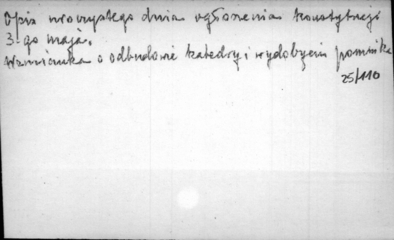 Opis uroczystego dnia ogłoszenia konstytucji
3-go maja.
Wzmianka o odbudowie katedry i wydobyciu pomnika
25/110